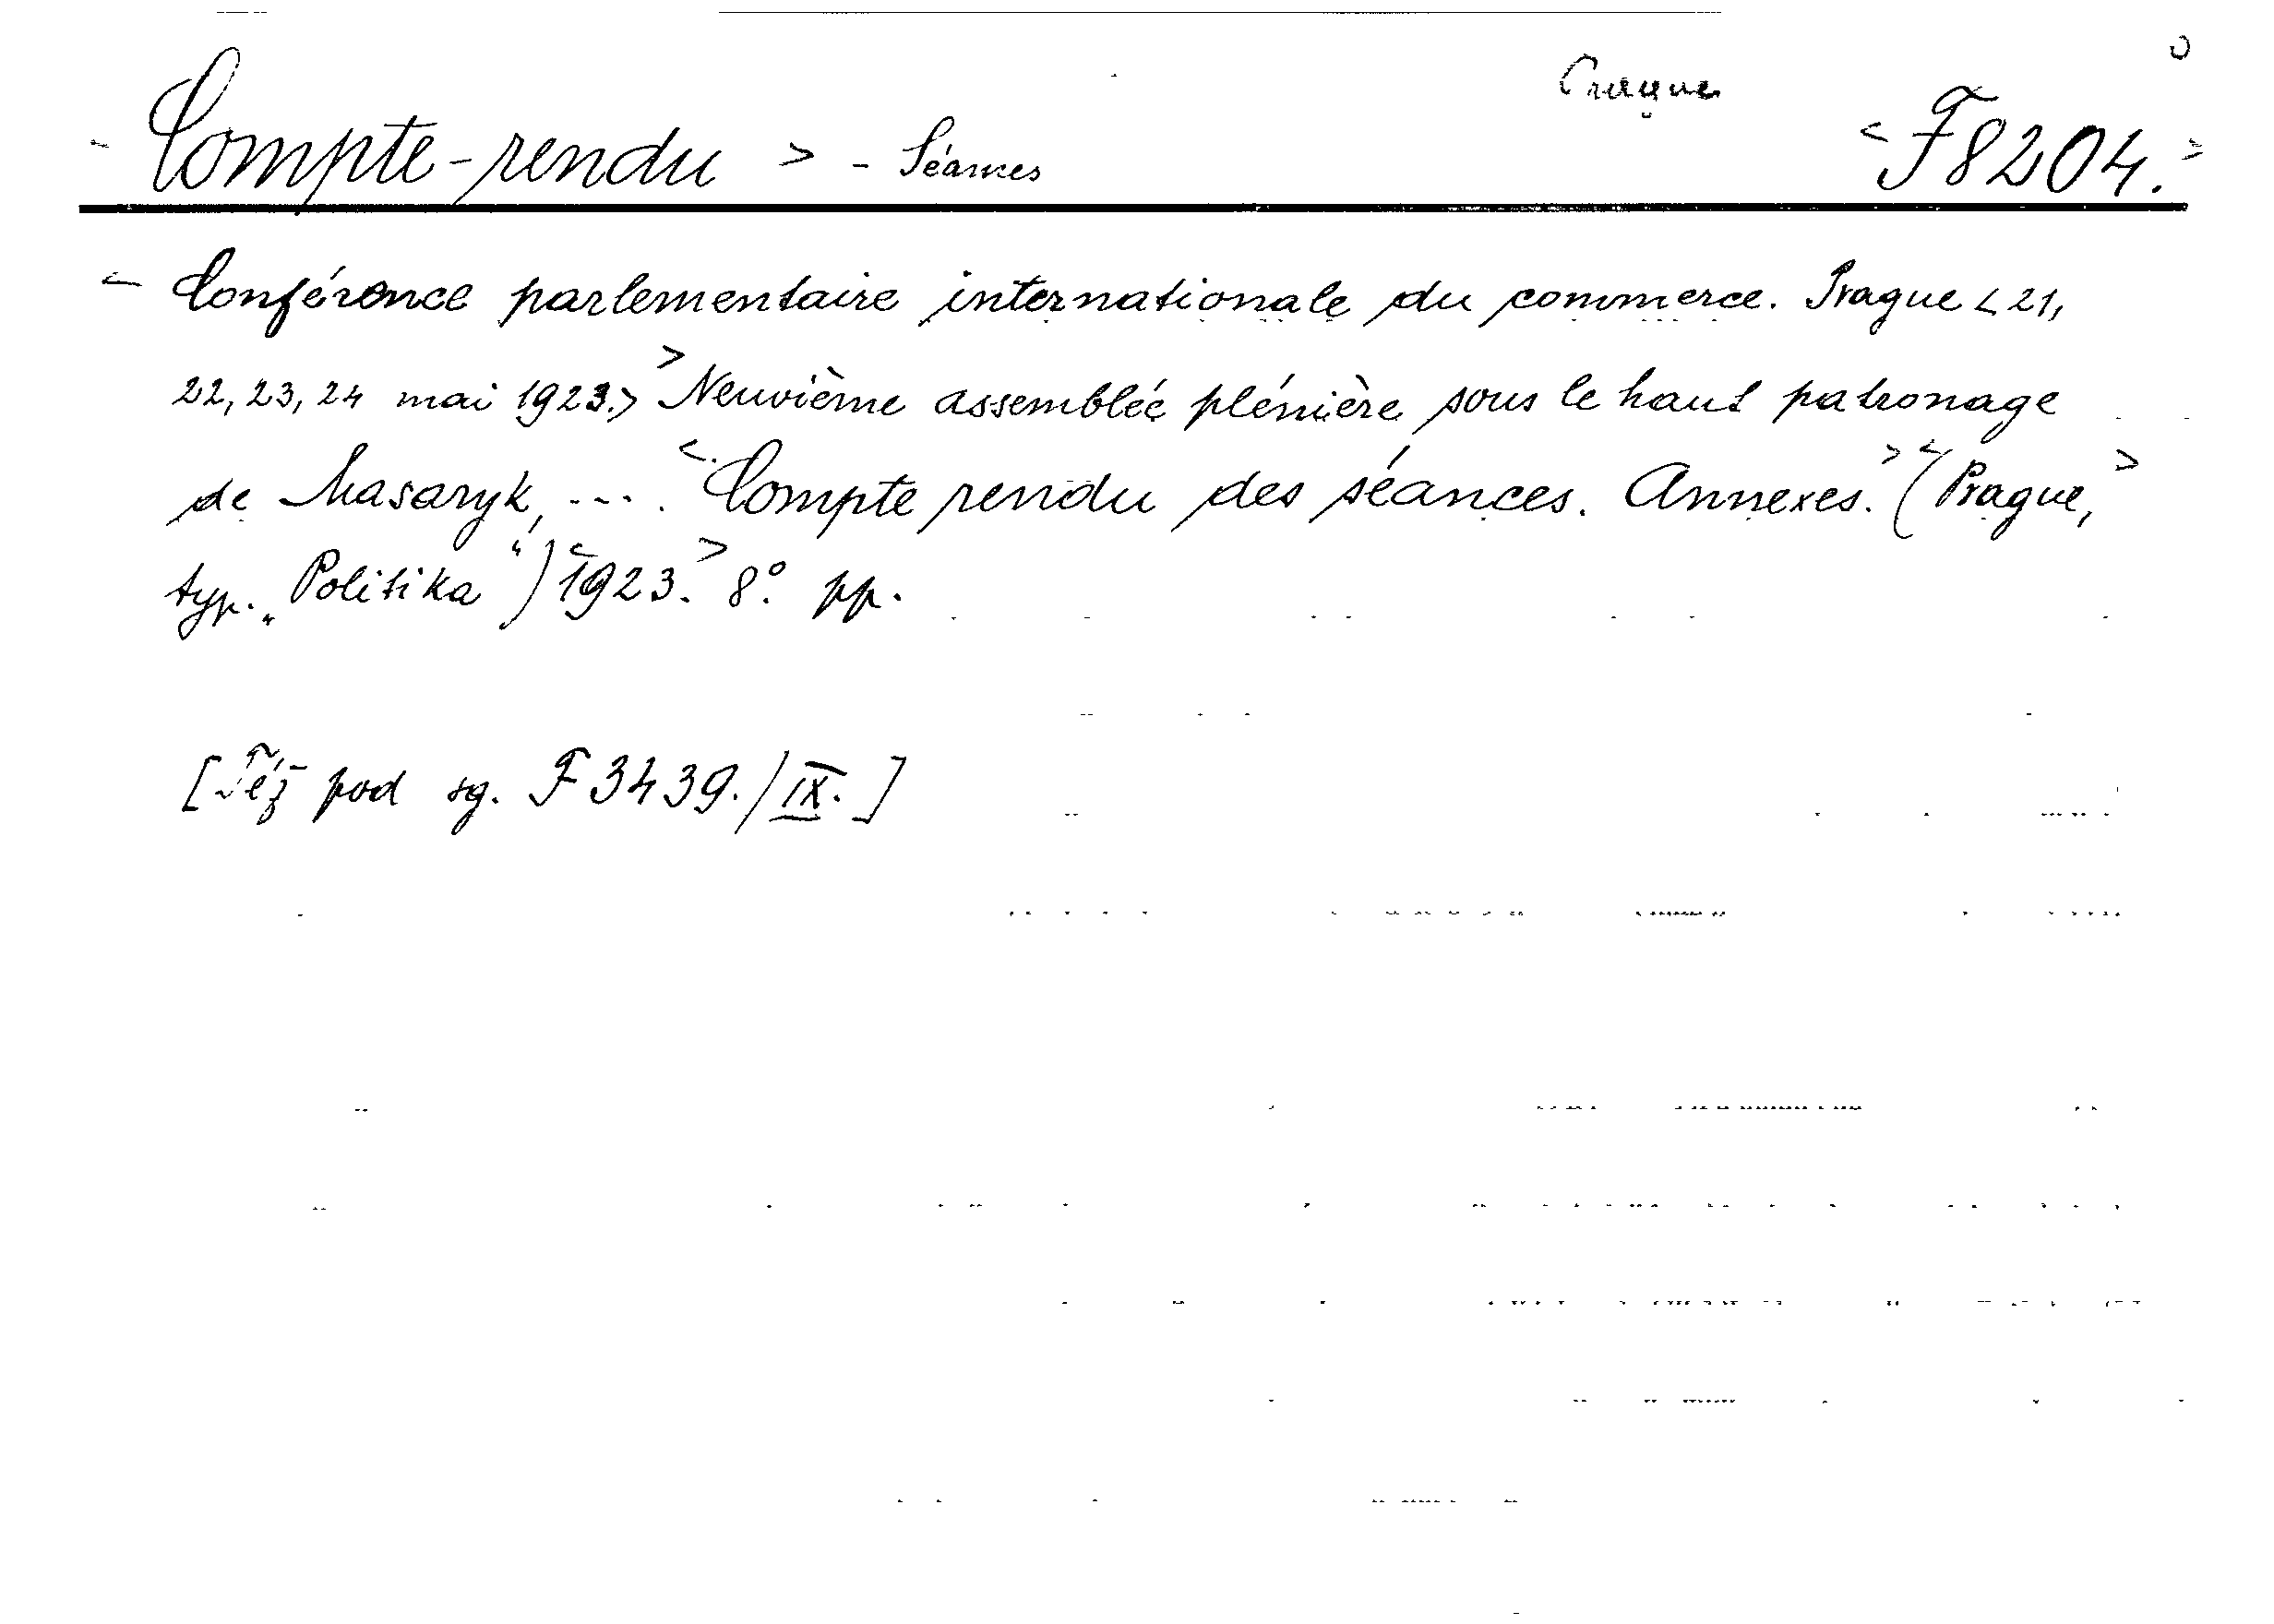 Prague
Compte-rendu > - Séances <F8204.>
< Conférence parlementaire internationale du commerce. Prague < 21,
22, 23, 24 mai 1923.> > Neuvième assemblée plénière sous le haut patronage
de Masaryk, ... . < Compte rendu des séances. Annexes. > < (Prague, >
typ. „Politika“) < 1923. > 8°. pp.
[Též pod sg. F 3439./IX.]